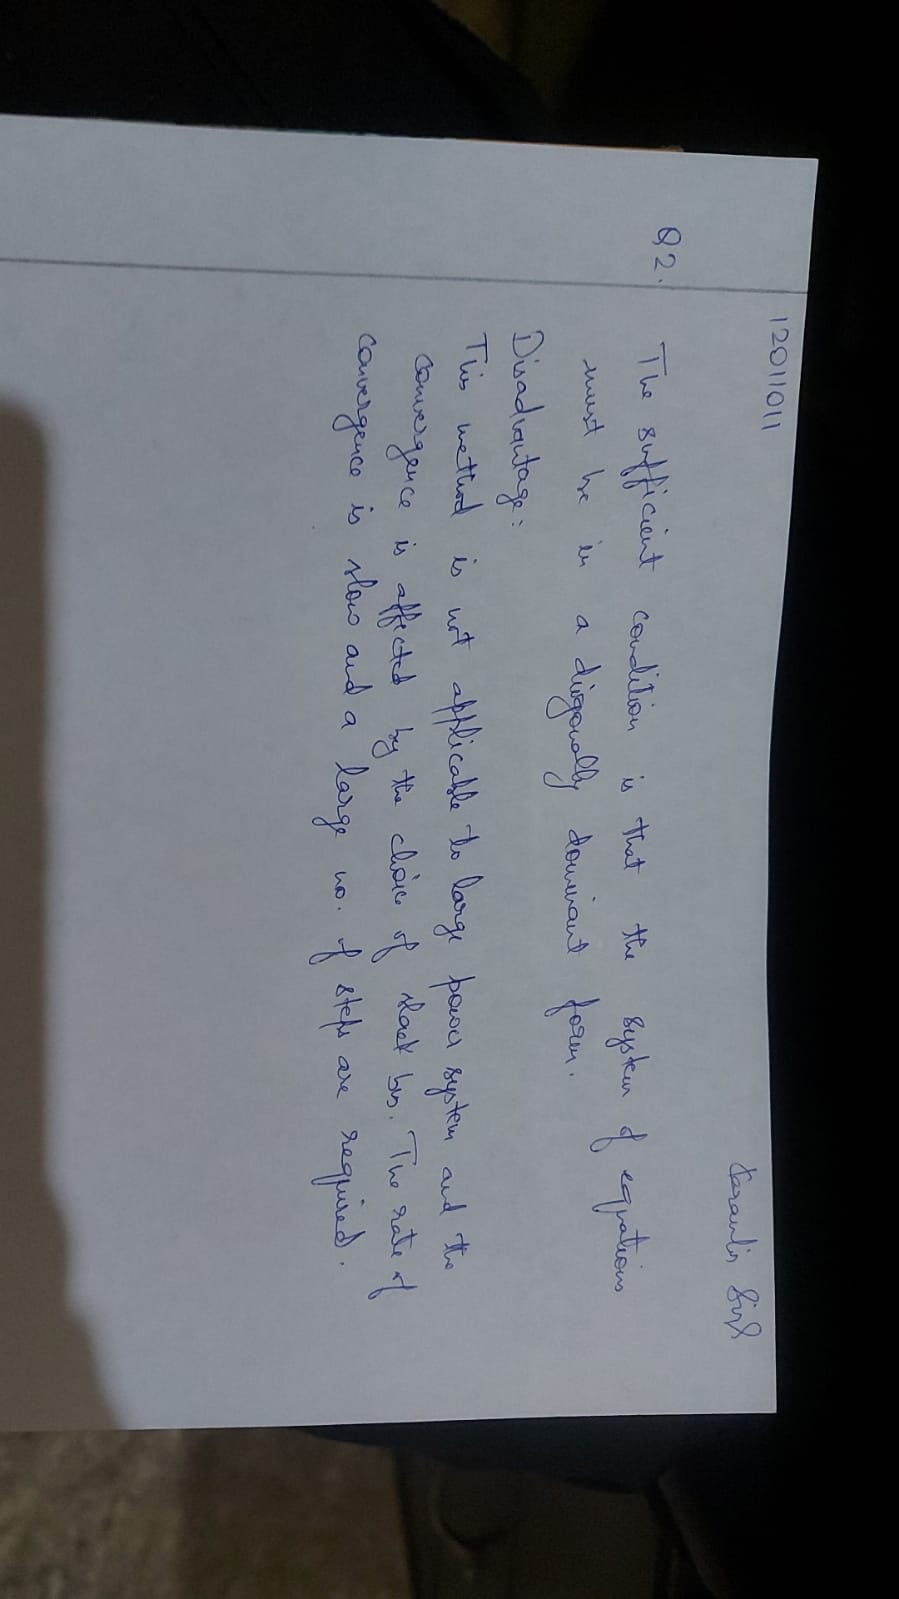 12011011
Q2.
The sufficient condition is that the system of equations
must be in a diagonally dominant form.
Disadvantage:
This method is not applicable to large power system and the
convergence is affected by the choice of slack bus. The rate of
convergence is slow and a large no. of steps are required.